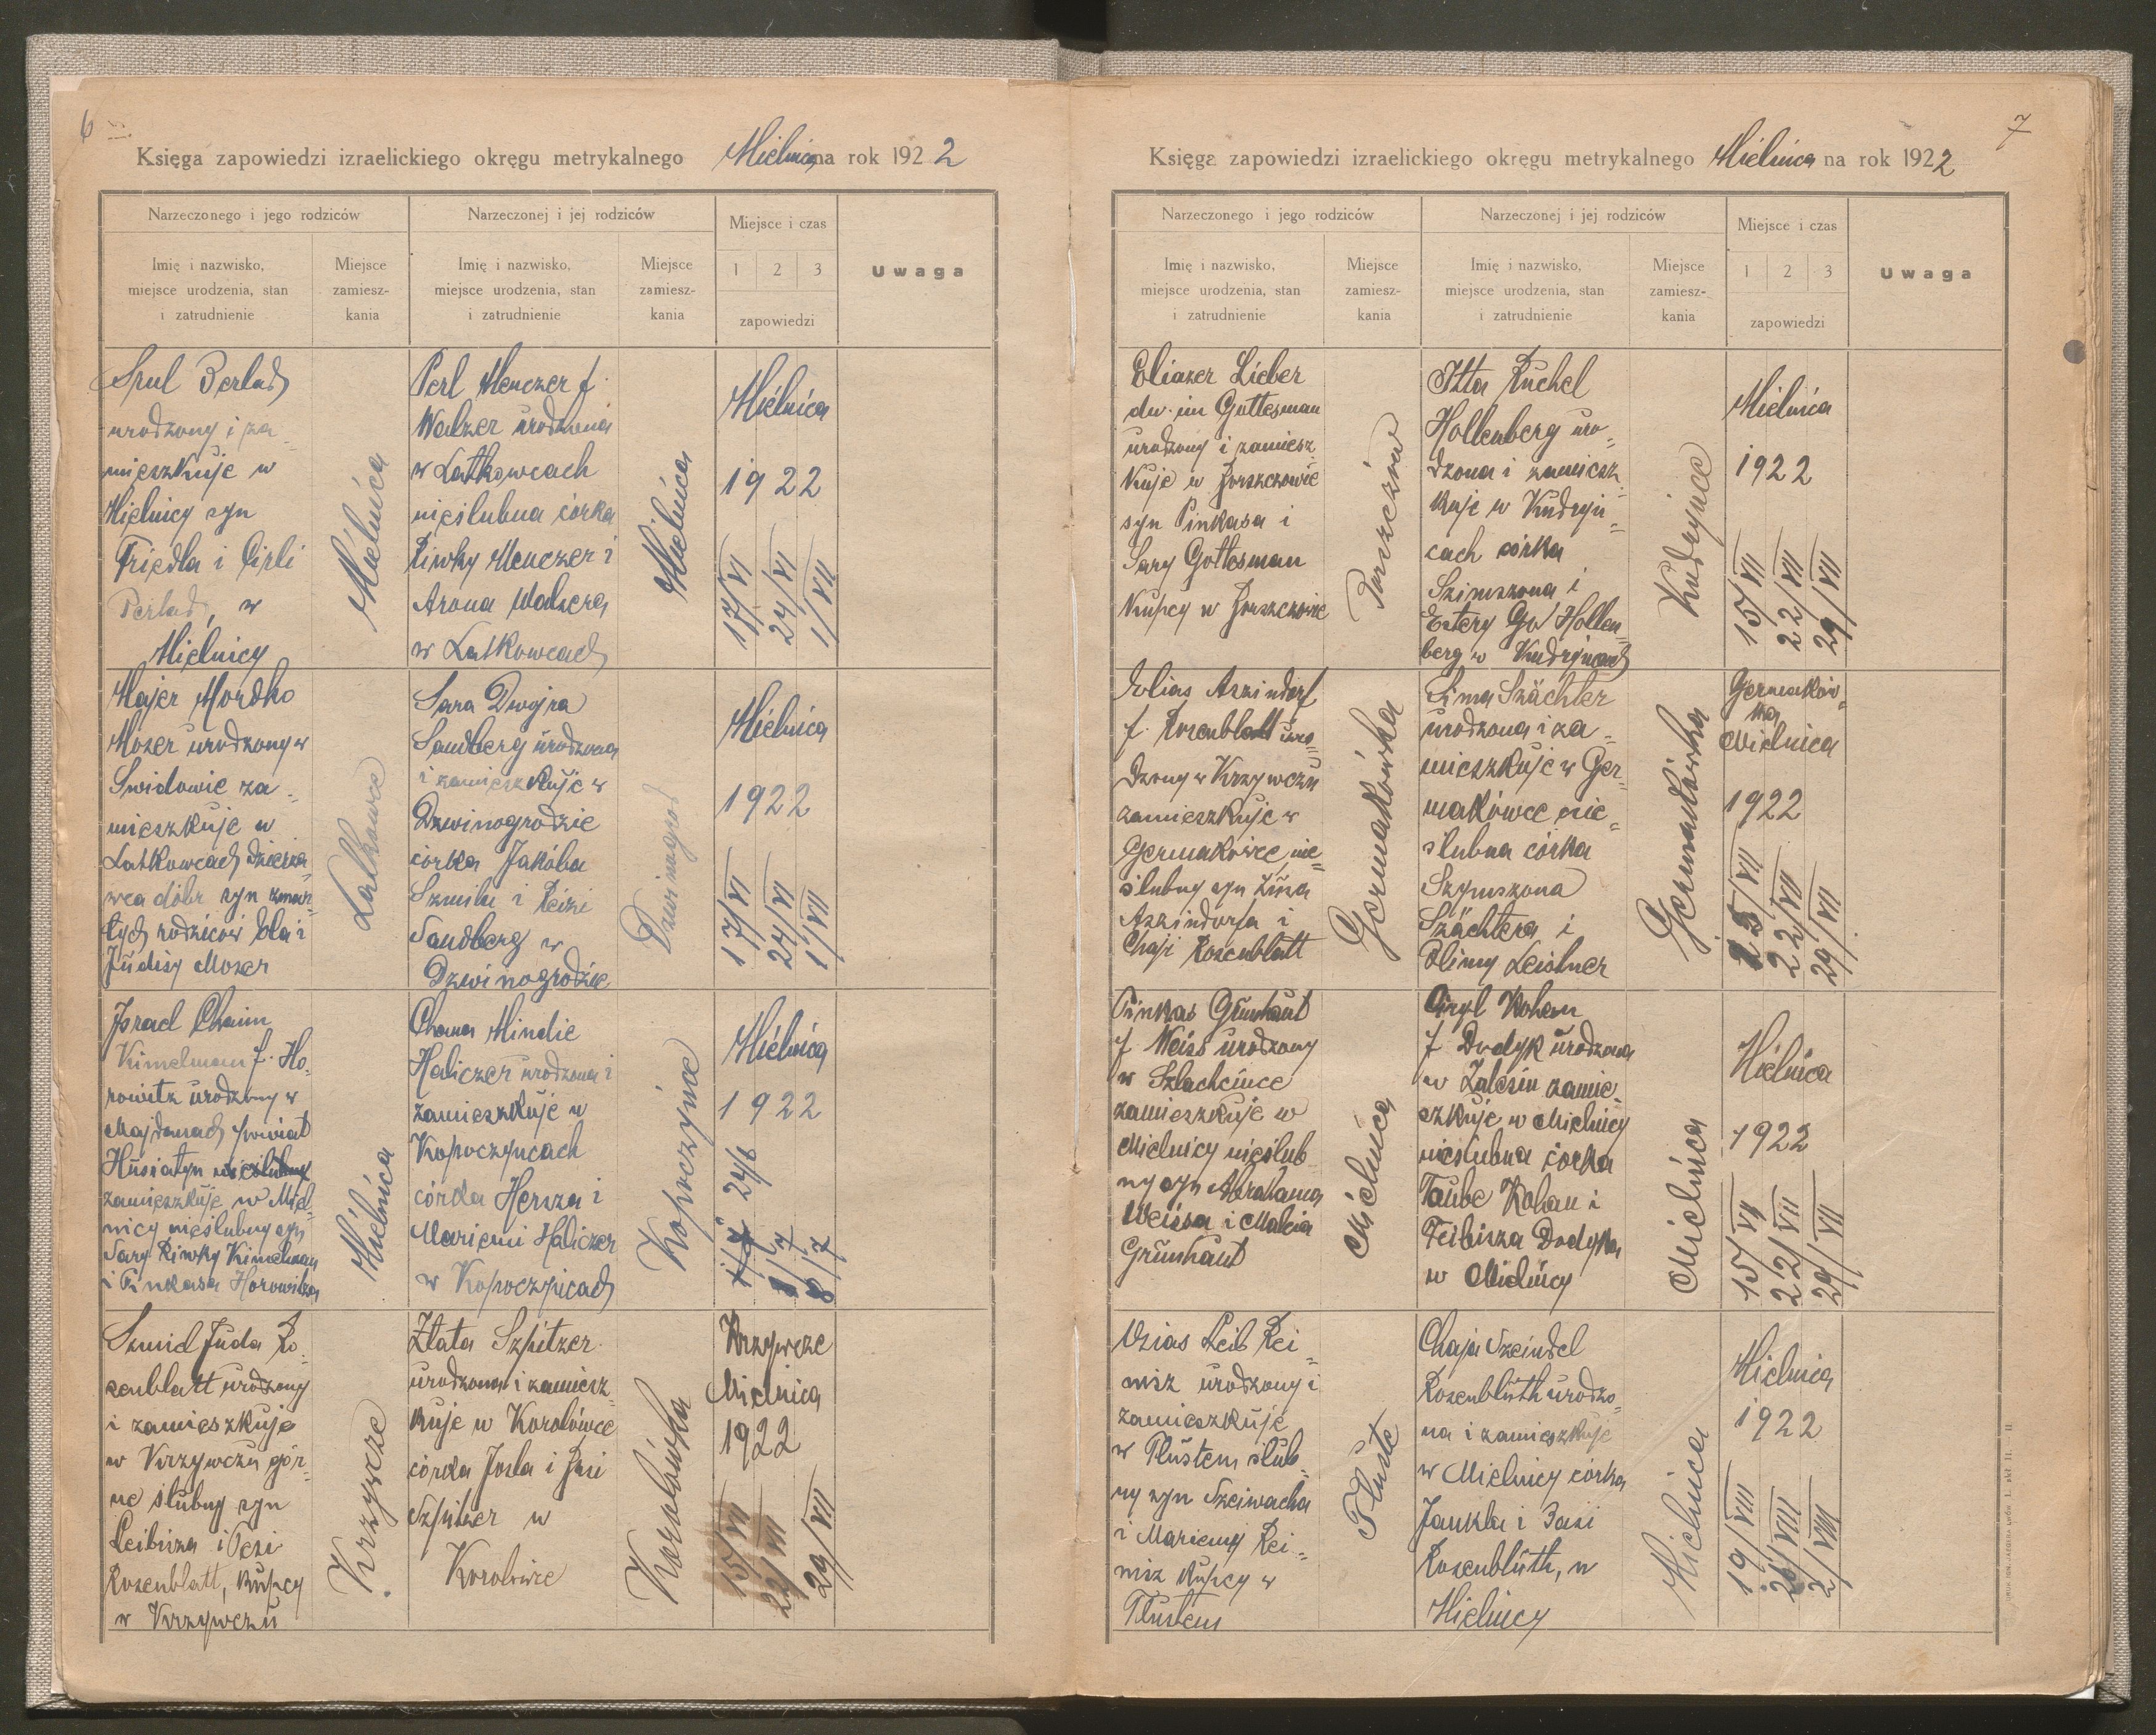 6
Księga zapowiedzi izraelickiego okręgu metrykalnego Mielnica na rok 1922
Narzeczonego i jego rodziców
Narzeczonej i jej rodziców
Miejsce i czas
Uwaga
Imię i nazwisko,
miejsce urodzenia, stan
i zatrudnienie
Miejsce
zamiesz-
kania
Imię i nazwisko,
miejsce urodzenia, stan
i zatrudnienie
Miejsce
zamiesz-
kania
1 2 3
zapowiedzi
Srul Perlad
urodzony i za
mieszkuje w
Mielnicy syn
Friedla i Cirli
Perlad, w
Mielnicy
Mielnica
Perl Menczer f.
Walzer urodzona
w Latkowcach
nieślubna córka
Riwky Menczer i
Arona Walzera
w Latkowcach
Mielnica
Mielnica
1922
17/VI
24/VI
1/VII
Majer Mordko
Mozer urodzony w
Swidowie za
mieszkuje w
Latkowcach dzierża
wca dóbr syn zmar
łych rodziców i
Judisy Mozer
Latkowce
Sara Dwojra
Sandberg urodzona
i zamieszkuje w
Dzwinogrodzie
córka Jakóba
Szmila i Reizi
Sandberg w
Dzwinogrodzie
Dzwinogrod
Mielnica
1922
17/VI
24/VI
1/VII
Israel Chaim
Kimelman f. Ho
rowitz urodzony w
Majdanach powiat
Husiatyn
zamieszkuje w Miel
nicy nieślubny syn
Sary Riwky Kimelman
i Pinkasa Horowitza
Mielnica
Chana Mindie
Haliczer urodzona i
zamieszkuje w
Kopoczyncach
córka Hersza i
Mariemi Haliczer
w Kopoczyncach
Kopoczynce
Mielnica
1922
24/6
1/7
8/7
Szmil Juda Ro
senblatt urodzony
i zamieszkuje
w Krzywczu gór
ne ślubny syn
Leibisza i Pesi
Rosenblatt, kupcy
w Krzywczu
Krzywcze
Zlata Szpitzer
urodzona i zamiesz
kuje w Korolówce
córka Josla i
Szpitzer w
Korolówce
Korolówka
Krzywcze
Mielnica
1922
15/VII
22/VII
29/VII
7
Księga zapowiedzi izraelickiego okręgu metrykalnego Mielnica na rok 1922
Narzeczonego i jego rodziców
Narzeczonej i jej rodziców
Miejsce i czas
Uwaga
Imię i nazwisko,
miejsce urodzenia, stan
i zatrudnienie
Miejsce
zamiesz-
kania
Imię i nazwisko,
miejsce urodzenia, stan
i zatrudnienie
Miejsce
zamiesz-
kania
1 2 3
zapowiedzi
Eliazer Lieber
dw. im Gottesman
urodzony i zamiesz
kuje w Borszczowie
syn Pinkasa i
Sary Gottesman
kupcy w Borszczowie
Borszczów
Itta Ruchel
Hollenberg uro
dzona i zamiesz
kuje w Kudryn
cach córka
Szimszona i
Estery Hollen
berg w Kudryncach
Kudrynce
Mielnica
1922
15/VII
22/VII
29/VII
Elias Aszindorf
f. Rosenblatt uro
dzony w Krzywczu
zamieszkuje w
Germakówce, nie
ślubny syn
Aszindorfa i
Chaji Rosenblatt
Germakówka
Sima Szächter
urodzona i za
mieszkuje w Ger
makówce nie
ślubna córka
Szymszona
Szächtera i
Leistner
Germakówka
Germaków
ka
Mielnica
1922
15/VII
22/VII
29/VII
Pinkas Grünhaut
f. Weiss urodzony
w Szlachcince
zamieszkuje w
Mielnicy nieślub
ny syn Abrahama
Weissa i Malcia
Grünhaut
Mielnica
Ciryl Kohan
f. Dodyk urodzona
w Zalesiu zamie
szkuje w Mielnicy
nieślubna córka
Taube Kohan i
Feibisza Dodyka
w Mielnicy
Mielnica
Mielnica
1922
15/VII
22/VII
29/VII
Ozias Leib Rei
nisz urodzony i
zamieszkuje
w Tłustem ślub
ny syn Szeiwacha
i Mariemy Rei
nisz kupcy w
Tłustem
Tłuste
Chaja Szeindel
Rosenblüth urodzo
na i zamieszkuje
w Mielnicy córka
Jankla i Basi
Rosenblüth, w
Mielnicy
Mielnica
Mielnica
1922
19/VIII
26/VIII
2/VIII